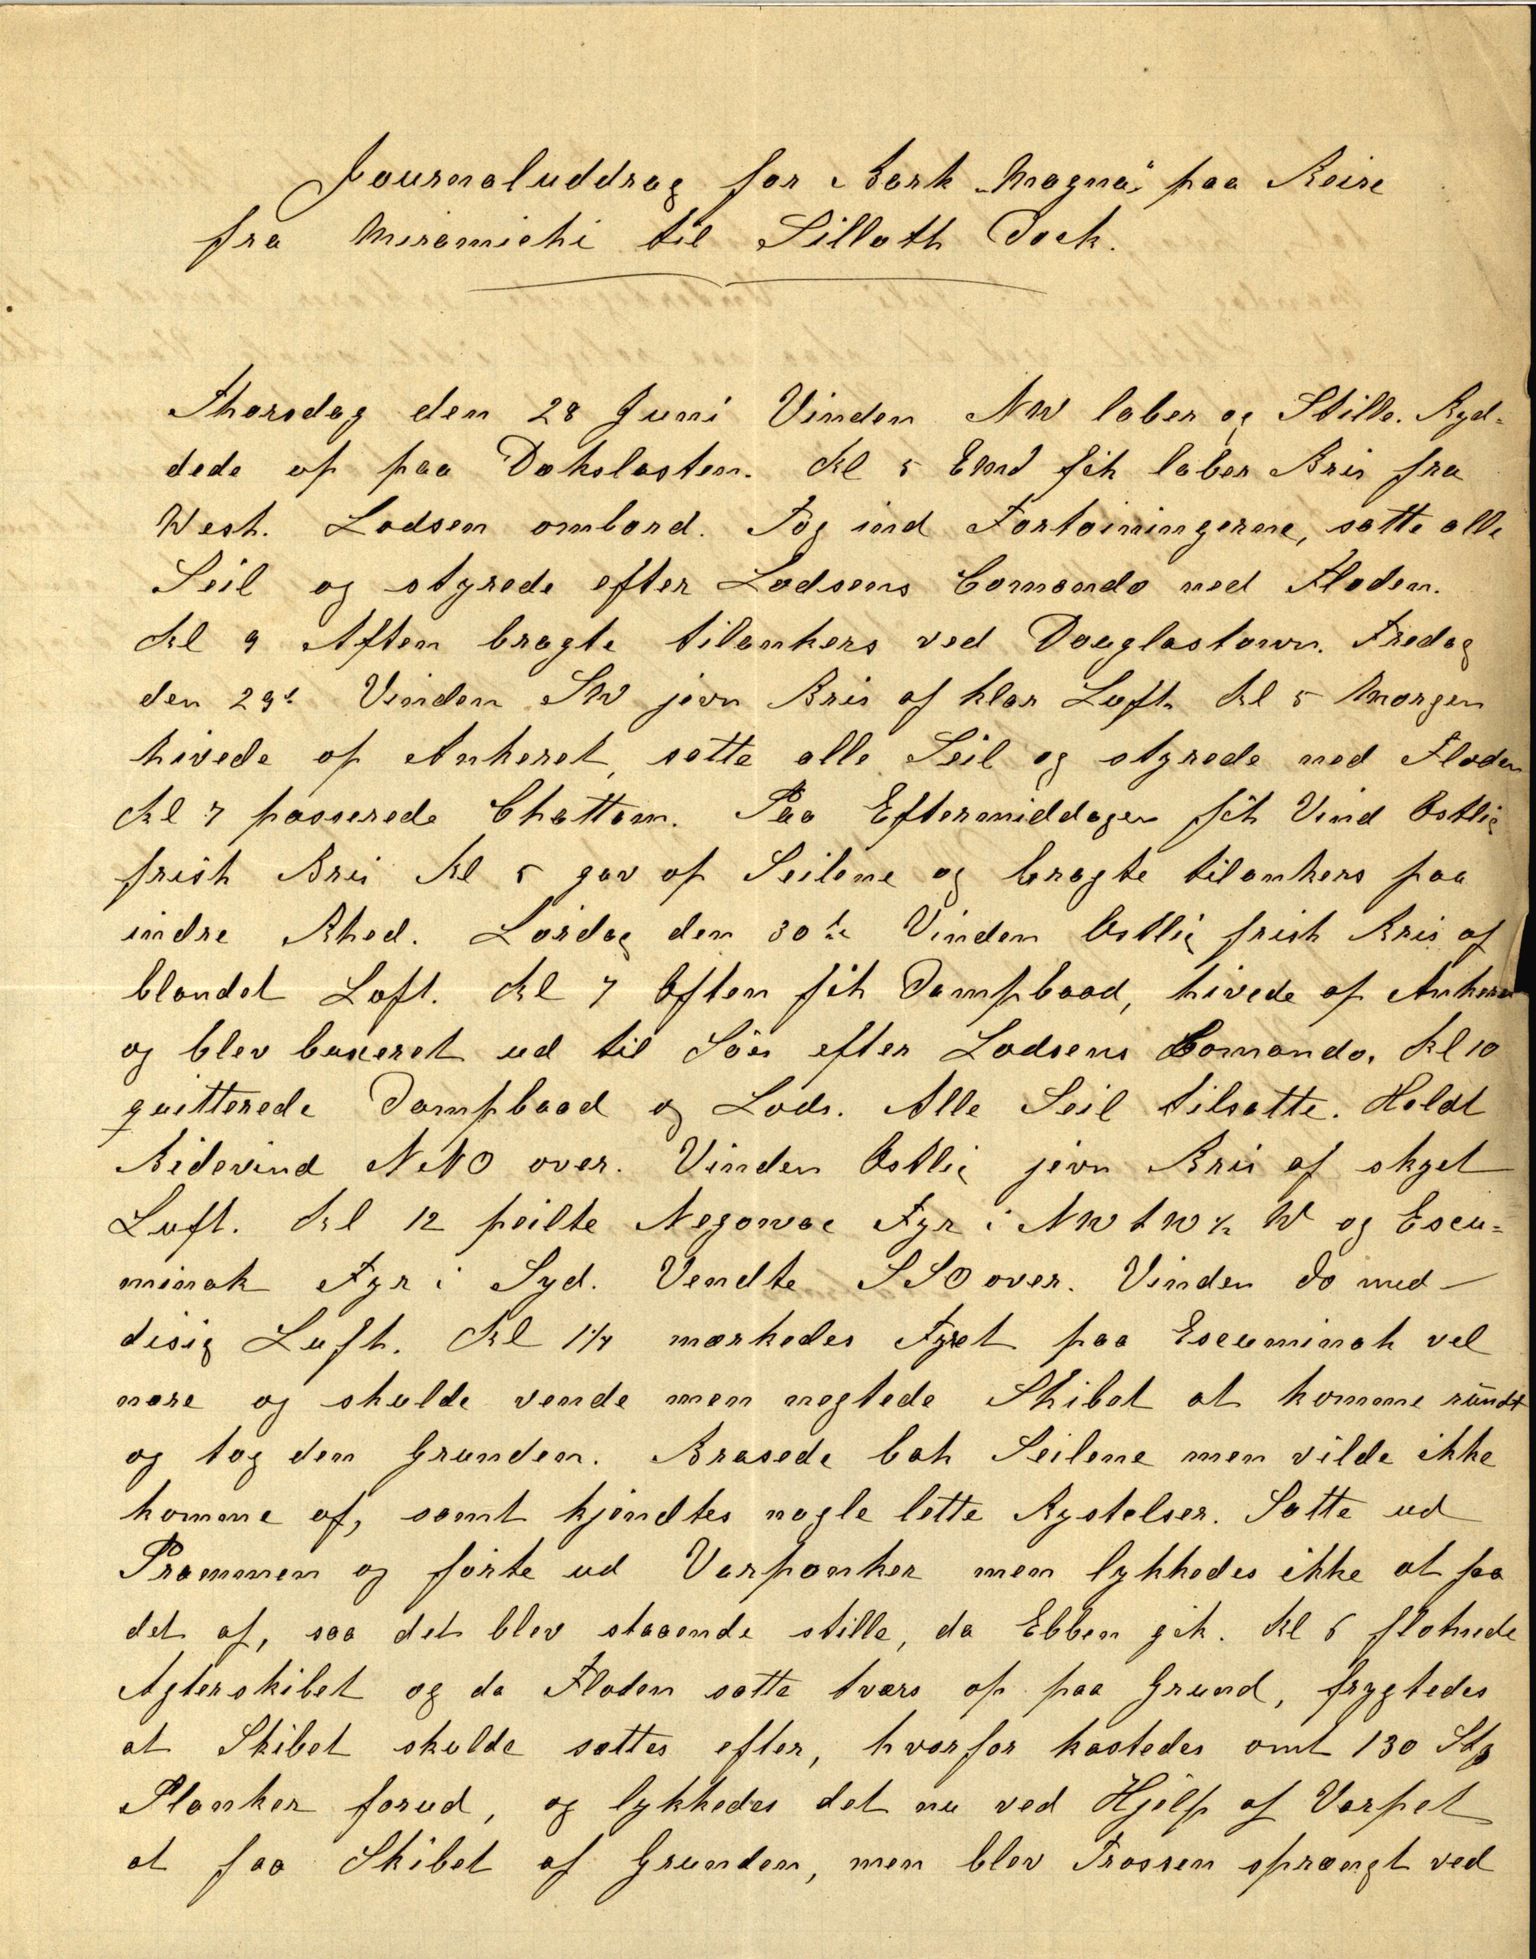 Journaluddrag for Bark „Magna“ paa Reise
fra Miramichi til Silloth Dock.
Thorsdag den 28 Juni Vinden NW laber og Stille. Ryd-
dede op paa Dækslasten. Kl 5 EMd fik laber Bris fra
West. Lodsen ombord. Tog ind Fortøiningerne, satte alle
Seil og styrede efter Lodsens Comando ned Floden.
Kl 9 Aften bragte tilankers ved Douglastown. Fredag
den 29de Vinden SW jevn Bris af klar Luft Kl 5 Morgen
hivede op Ankeret, satte alle Seil og styrede ned Floden
Kl 7 passerede Chattam. Paa Eftermiddagen fik Vind Østlig
frisk Bris Kl 5 gav op Seilene og bragte tilankers paa
indre Rhed. Lørdag den 30te Vinden Østlig frisk Bris af
blandet Luft. Kl 7 Aften fik Dampbaad, hivede op Ankeret
og blev buxeret ud til Søes efter Lodsens Comando. Kl 10
quitterede Dampbaad og Lods. Alle Seil tilsatte. Holdt
Bidevind NNO over. Vinden Østlig jevn Bris af skyet
Luft. Kl 12 peilte Negowac Fyr i NWtW½W og Escu-
minak Fyr i Syd. Vendte SSO over. Vinden do med
disig Luft. Kl 1¼ mærkedes Fyret paa Escuminak vel
nære og skulde vende men negtede Skibet at komme rundt
og tog den Grunden. Brasede bak Seilene men vilde ikke
komme af, samt kjendtes nogle lette Rystelser. Satte ud
Prammen og førte ud Varpanker men lykkedes ikke at faa
det af, saa det blev staaende stille, da Ebben gik. Kl 5 flotnede
Agterskibet og da Floden satte tvers op paa Grund, frygtedes
at Skibet skulde sættes efter, hvorfor kastedes omt 130 Stk
Planker forud, og lykkedes det nu ved Hjælp af Varpet
at faa Skibet af Grunden, men blev Trossen sprængt ved